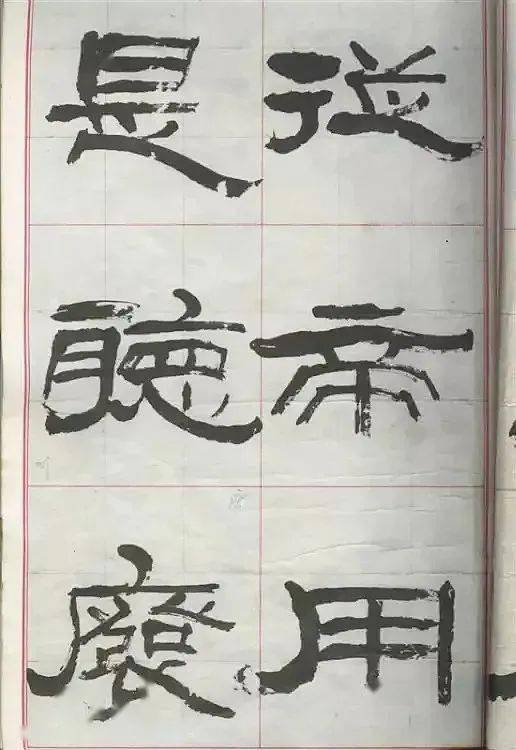 從帝用
是聽廢